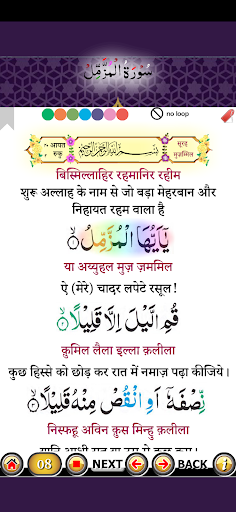 سُوْرَةُ الْمُزَّمِّلِ
no loop
२० आयत
रुकू
بِسْمِ اللهِ الرَّحْمٰنِ الرَّحِيْمِ
सूरह
मुज़म्मिल
बिस्मिल्लाहिर रहमानिर रहीम
शुरू अल्लाह के नाम से जो बड़ा मेहरबान और
निहायत रहम वाला है
يٰۤاَيُّهَا الْمُزَّمِّلُ ۙ﴿۱﴾
या अय्युहल मुज़ ज़ममिल
ऐ (मेरे) चादर लपेटे रसूल !
قُمِ الَّيْلَ اِلَّا قَلِيْلًا ۙ﴿۲﴾
क़ुमिल लैला इल्ला क़लीला
कुछ हिस्से को छोड़ कर रात में नमाज़ पढ़ा कीजिये ।
نِّصْفَهٗۤ اَوِ انْقُصْ مِنْهُ قَلِيْلًا ۙ﴿۳﴾
निस्फहू अविन क़ुस मिन्हु क़लीला
08 NEXT BACK i